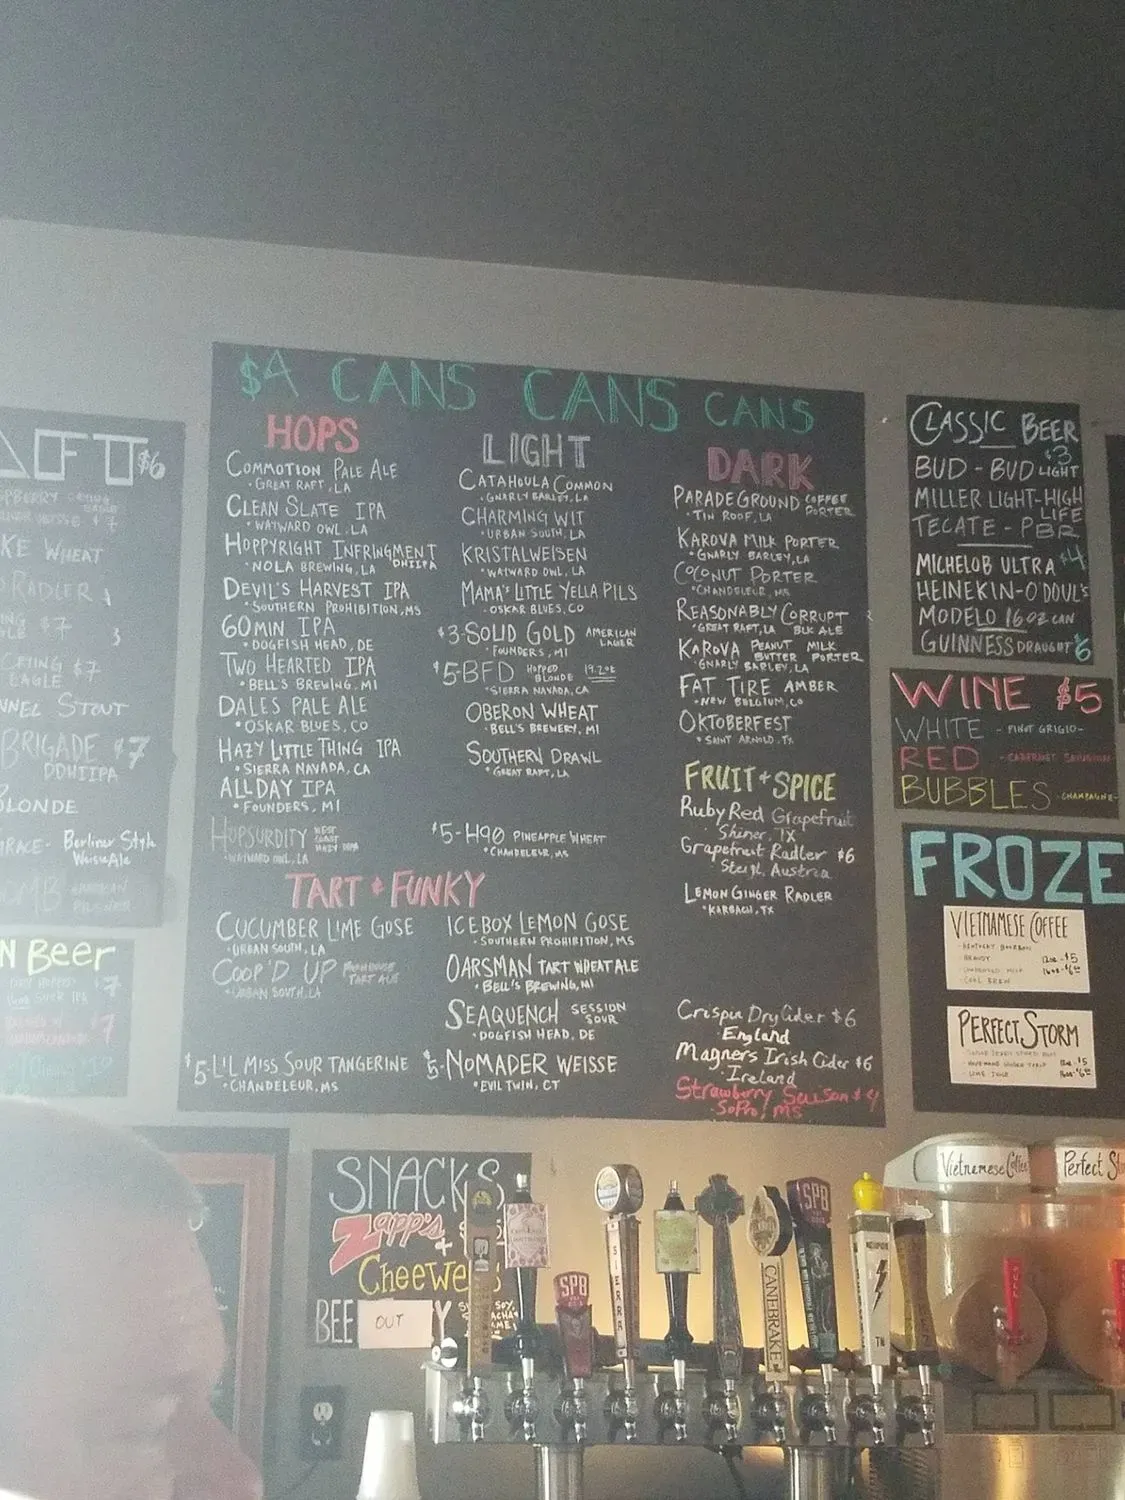 $6
$7
KE WHEAT
RADLER
$7
CRYING
EAGLE $7
NNEL STOUT
BRIGADE $7
DDHIIPA
BLONDE
RACE- Berliner Style
Weisse Ale
N Beer
7
$7
$4 CANS CANS CANS
HOPS
COMMOTION PALE ALE
• GREAT RAFT, LA
CLEAN SLATE IPA
• WAYWARD OWL, LA
HOPPYRIGHT INFRINGMENT
DHIIPA
• NOLA BREWING, LA
DEVIL'S HARVEST IPA
• SOUTHERN PROHIBITION, MS
60 MIN IPA
• DOGFISH HEAD, DE
TWO HEARTED IPA
• BELL'S BREWING, MI
DALES PALE ALE
• OSKAR BLUES, CO
HAZY LITTLE THING IPA
• SIERRA NAVADA, CA
ALL DAY IPA
• FOUNDERS, MI
HOPSURDITY WEST
COAST
• WAYWARD OWL, LA
LIGHT
CATAHOULA COMMON
• GNARLY BARLEY, LA
CHARMING WIT
• URBAN SOUTH, LA
KRISTALWEISEN
• WAYWARD OWL, LA
MAMA'S LITTLE YELLA PILS
• OSKAR BLUES, CO
$3-SOLID GOLD AMERICAN
LAGER
• FOUNDERS, MI
$5-BFD HOPPED
BLONDE 19.2oz
• SIERRA NAVADA, CA
OBERON WHEAT
• BELL'S BREWERY, MI
SOUTHERN DRAWL
• GREAT RAFT, LA
$5-H90 PINEAPPLE WHEAT
• CHANDELEUR, MS
DARK
PARADEGROUND COFFEE
PORTER
• TIN ROOF, LA
KAROVA MILK PORTER
• GNARLY BARLEY, LA
COCONUT PORTER
• CHANDELEUR, MS
REASONABLY CORRUPT
• GREAT RAFT, LA BLK ALE
KAROVA PEANUT MILK
BUTTER PORTER
• GNARLY BARLEY, LA
FAT TIRE AMBER
• NEW BELGIUM, CO
OKTOBERFEST
• SAINT ARNOLD, TX
FRUIT + SPICE
Ruby Red Grapefruit
Shiner, TX
Grapefruit Radler $6
Steigl, Austria
LEMON GINGER RADLER
• KARBACH, TX
Crispin Dry Cider $6
England
Magners Irish Cider $6
• Ireland
Strawberry Saison $4
SoPro, MS
TART + FUNKY
CUCUMBER LIME GOSE
• URBAN SOUTH, LA
COOP'D UP FARMHOUSE
TART ALE
• URBAN SOUTH, LA
$5-LIL MISS SOUR TANGERINE
• CHANDELEUR, MS
ICEBOX LEMON GOSE
• SOUTHERN PROHIBITION, MS
OARSMAN TART WHEAT ALE
• BELL'S BREWING, MI
SEAQUENCH SESSION
SOUR
• DOGFISH HEAD, DE
$5-NOMADER WEISSE
• EVIL TWIN, CT
CLASSIC BEER
$3
BUD - BUD LIGHT
MILLER LIGHT-HIGH
LIFE
TECATE - PBR
$4
MICHELOB ULTRA
HEINEKIN-O'DOUL'S
MODELO 16oz CAN
GUINNESS DRAUGHT $6
WINE $5
WHITE - PINOT GRIGIO -
RED - CABERNET SAUVIGNON
BUBBLES - CHAMPAGNE -
FROZE
VIETNAMESE COFFEE
- KENTUCKY BOURBON
- BRANDY
- CONDENSED MILK
- COOL BREW
12oz - $5
16oz - $6
PERFECT STORM
- LIME JUICE
12oz - $5
16oz - $6
Vietnamese Coffee
Perfect St
SNACKS
Zapp's +
Cheewe
BEE OUT Y
SPB
SIERRA
CANEBRAKE
SPB
TN
PULL